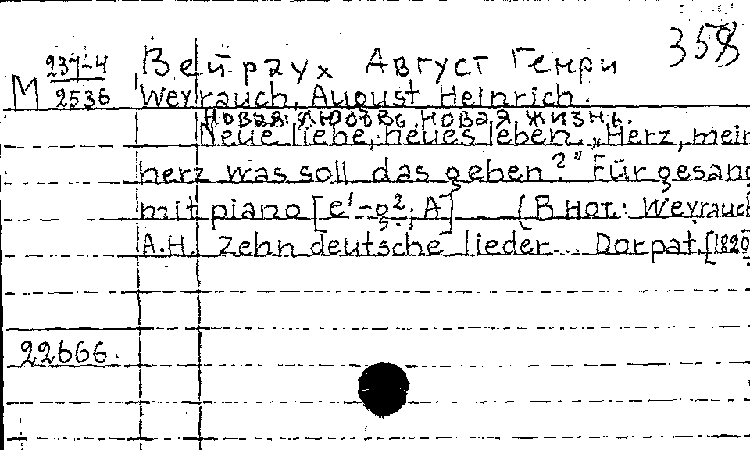 358
М 237-4 Вейраух Август Генри
2536 Weyrauch, August Heinrich.
Новая любовь, новая жизнь.
Neue liebe, neues leben. „Herz, mein
herz was soll das geben?" Für gesang
mit piano [e'-g²; A] (В нот.: Weyrauch
A.H. Zehn deutsche lieder... Dorpat, [1820
22666.